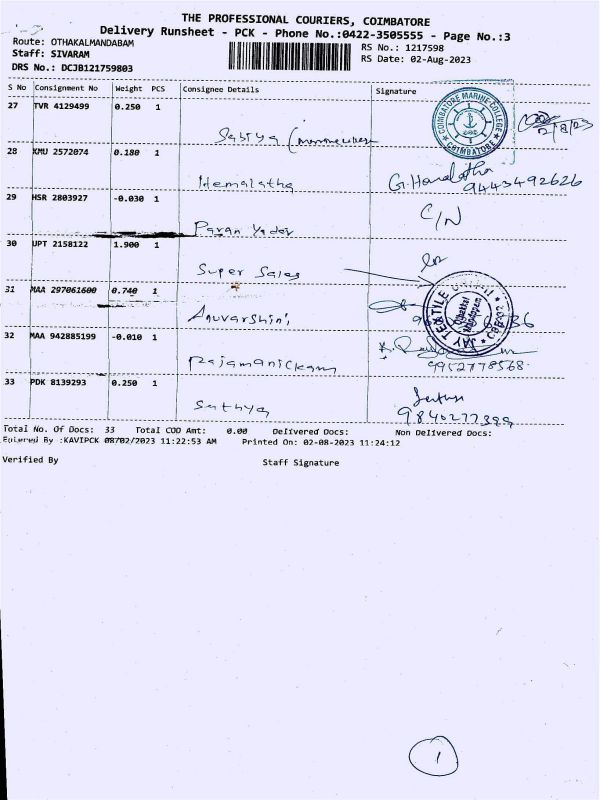 THE PROFESSIONAL COURIERS, COIMBATORE
Delivery Runsheet - PCK - Phone No.:0422-3505555 - Page No.:3
Route: OTHAKALMANDABAM
RS No.: 1217598
Staff: SIVARAM
RS Date: 02-Aug-2023
DRS No.: DCJB121759803
S No Consignment No Weight PCS Consignee Details Signature
27 TVR 4129499 0.250 1
COIMBATORE MARINE COLLEGE
* COIMBATORE *
2/8/23
Sabtya
28 KMU 2572074 0.180 1
Hemalatha
G. Hemalatha
9443492626
29 HSR 2803927 -0.030 1
C/N
Pavan Yadav
30 UPT 2158122 1.900 1
Super Sales
31 MAA 297061600 0.740 1
JAY TEXTILE
Anuvarshini
32 MAA 942885199 -0.010 1
Rajamanickam
9952778568
33 PDK 8139293 0.250 1
Sathya
9840277399
Total No. Of Docs: 33 Total COD Amt: 0.00 Delivered Docs: Non Delivered Docs:
Entered By :KAVIPCK 08/02/2023 11:22:53 AM Printed On: 02-08-2023 11:24:12
Verified By Staff Signature
1